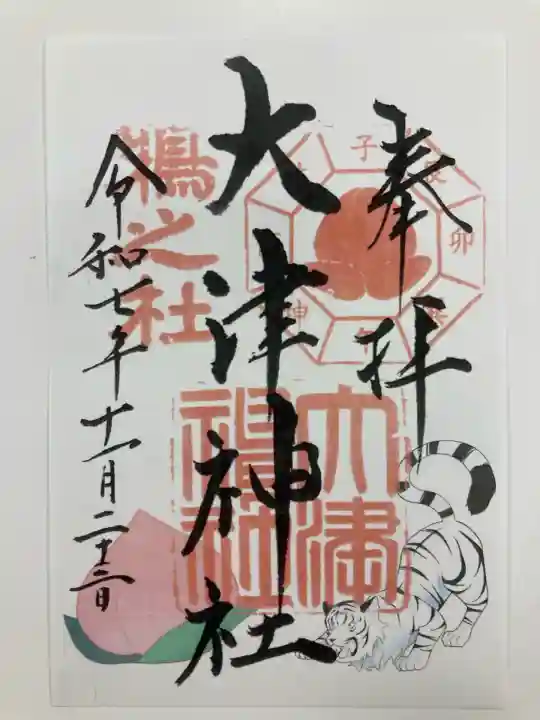 奉拝
大津神社
令和七年十一月二十二日
大津
神社
子
卯